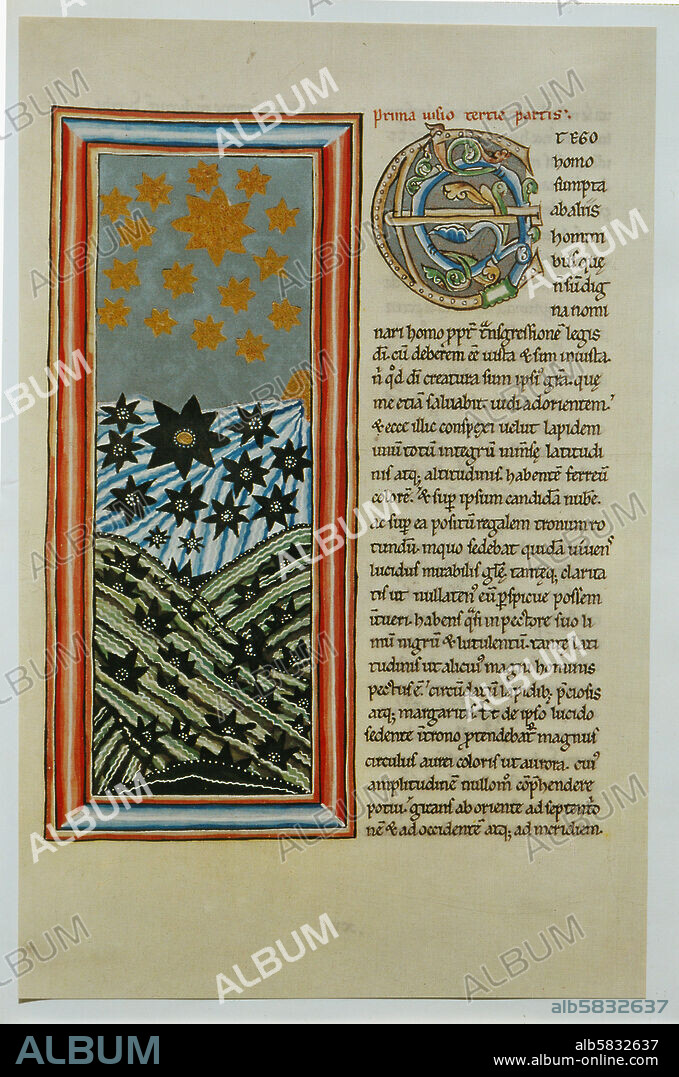 Prima uisio tertie partis.
ET EGO
homo
sumpta
ab aliis
homini
busque
n sū dig
na nomi
nari homo ꝓpt̄ t̄nsgressionē legis
dī. cū deberem eē iusta & sum iniusta.
n̄ qd̄ dī creatura sum ipsiꝰ gr̄a. quę
me etiā saluabit. uidi ad orientem.
& ecce illic conspexi uelut lapidem
unū totū integrū immensę latitudi
nis atq; altitudinis. habentē ferreū
colorē. & suꝑ ipsum candidā nubē.
ac suꝑ ea positū regalem tronum ro
tundū. in quo sedebat quidā uiuens
lucidus mirabilis glę. tantęq; clarita
tis ut nullatenꝰ eū ꝑspicue possem
intueri. habens qͣsi in pectore suo li
mū nigrū & lutulentū. tante lati
tudinis ut alicuiꝰ magni hominis
pectus ē. circūdatū lapidib; p̄ciosis
atq; margaritis. & de ipso lucido
sedente in trono ꝓtendebat̄ magnus
circulus aurei coloris ut aurora. cuiꝰ
amplitudinē nullom̄ cōp̄hendere
potui. girans ab oriente ad septentrio
nē & ad occidentē atq; ad meridiem.
ALBUM
alb5832637
ALBUM
alb5832637
www.album-online.com